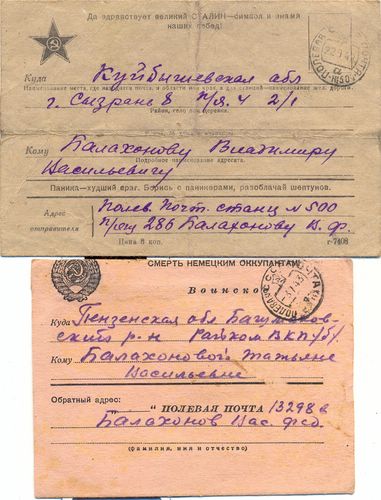 Да здравствует великий СТАЛИН—символ и знамя
наших побед!
Куда Куйбышевская обл
Наименование места, где находится почта, и области или края, а для станций—наименование жел. дороги.
г. Сызрань 8 п/я. ч 2/1
Район, село или деревня.
Кому Балахонову Владимиру
Подробное наименование адресата.
Васильевичу
Паника—худший враг. Борись с паникерами, разоблачай шептунов.
Адрес
отправителя
Полев. Почт. станц N 500
286 Балахонову В. Ф.
Цена 5 коп. г-7406
СМЕРТЬ НЕМЕЦКИМ ОККУПАНТАМ
Воинское
Куда Пензенская обл
р-н Райком ВКП/б/
Кому Балахоновой Татьяне
Васильевне
Обратный адрес:
„ ПОЛЕВАЯ ПОЧТА 13298 в
Балахонов Вас. Фед.
(фамилия, имя и отчество)